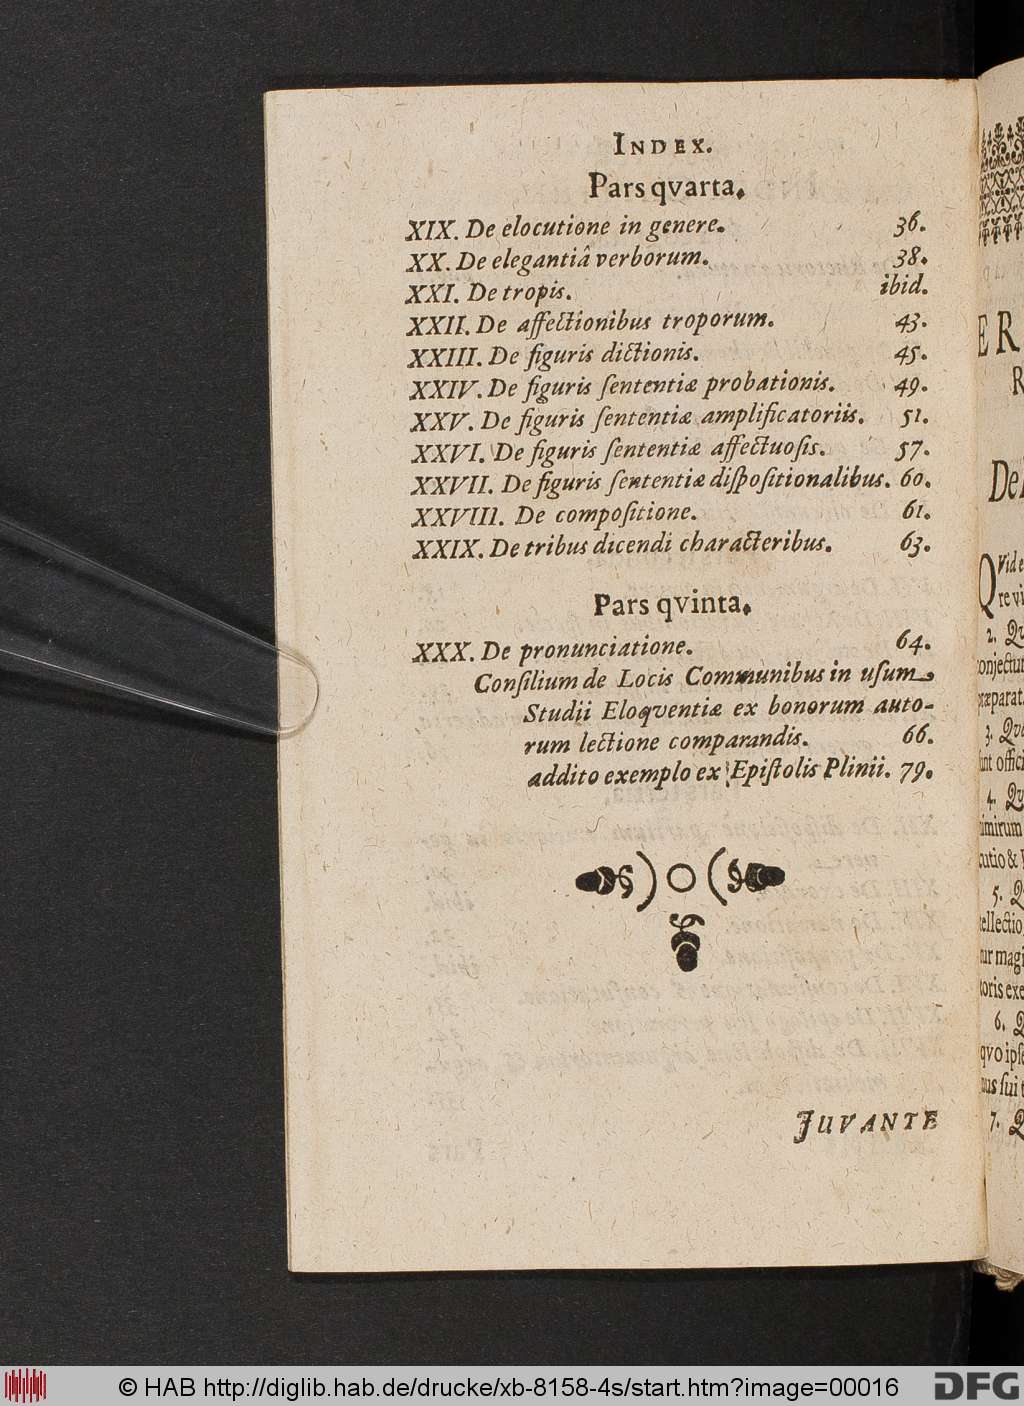 INDEX.
Pars qvarta.
XIX. De elocutione in genere. 36.
XX. De elegantiâ verborum. 38.
XXI. De tropis. ibid.
XXII. De affectionibus troporum. 43.
XXIII. De figuris dictionis. 45.
XXIV. De figuris ſententiæ probationis. 49.
XXV. De figuris ſententiæ amplificatoriis. 51.
XXVI. De figuris ſententiæ affectuoſis. 57.
XXVII. De figuris ſententiæ diſpoſitionalibus. 60.
XXVIII. De compoſitione. 61.
XXIX. De tribus dicendi characteribus. 63.
Pars qvinta.
XXX. De pronunciatione. 64.
Conſilium de Locis Communibus in uſum
Studii Eloqventiæ ex bonorum auto-
rum lectione comparandis. 66.
addito exemplo ex Epiſtolis Plinii. 79.
JUVANTE
ER
R
De
QVid e
re vi
2. Qu
onjectur
præparat
3. Qvæ
unt offici
4. Qu
nimirum
cutio &
5. Q
tellectio
tur magi
toris exe
6. Q
qvo ipſe
nus ſui t
7. Q
© HAB http://diglib.hab.de/drucke/xb-8158-4s/start.htm?image=00016
DFG